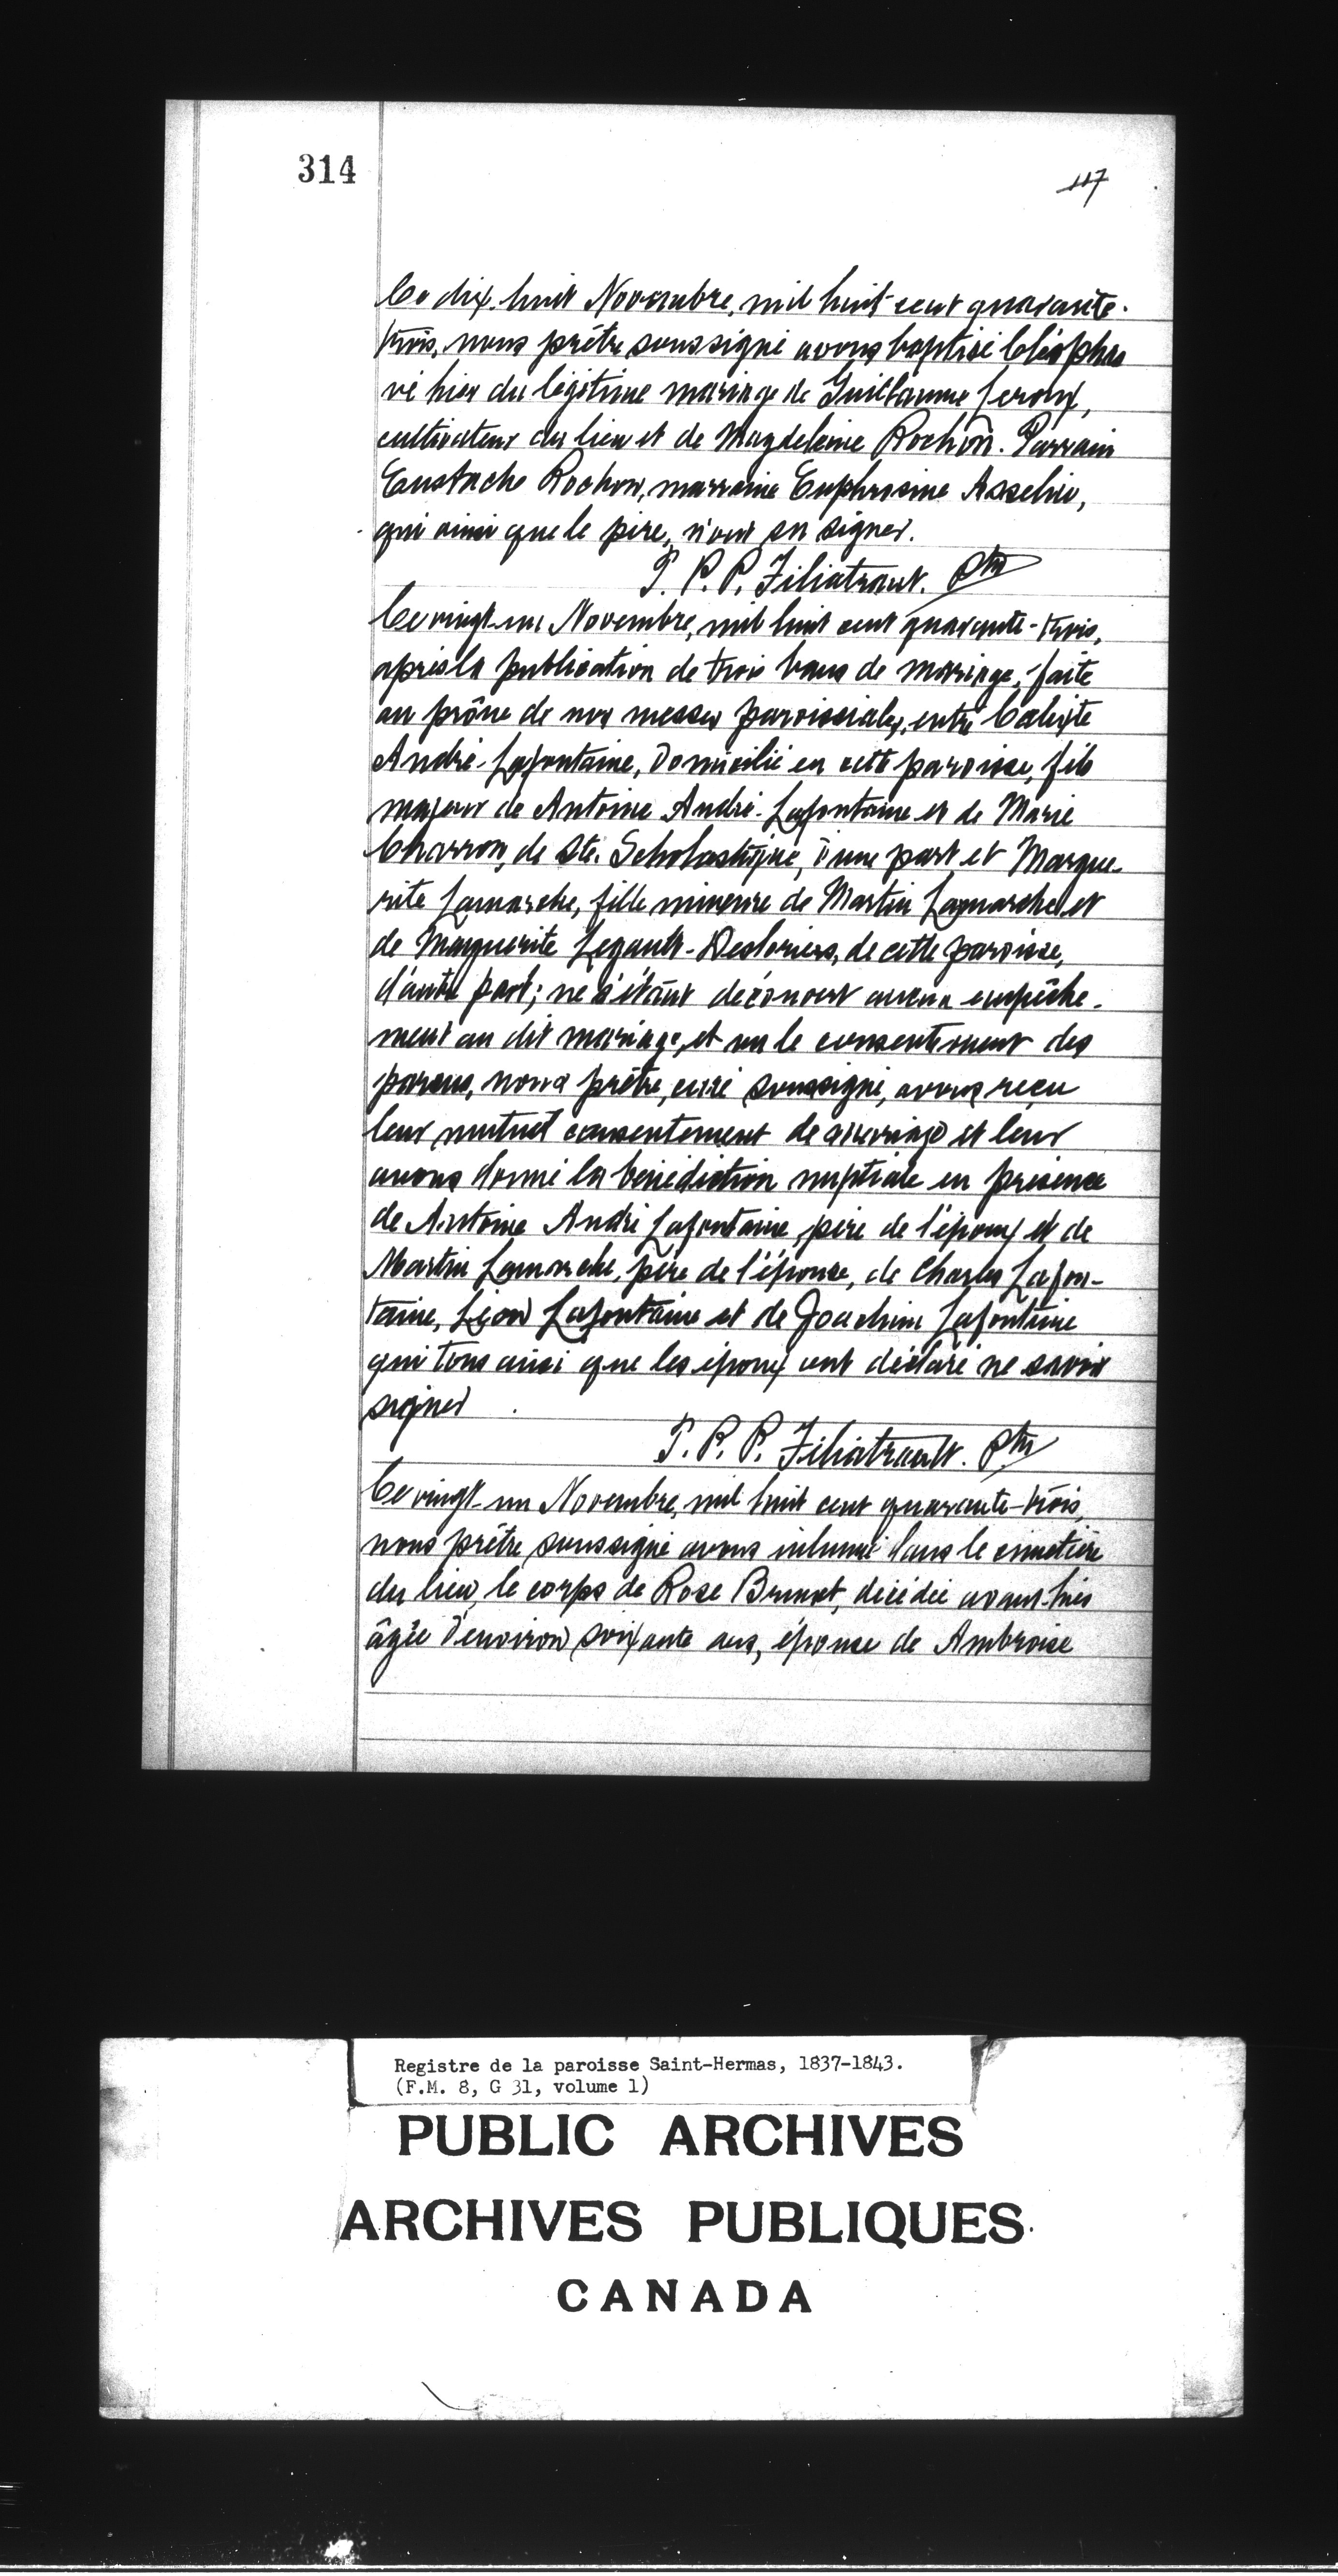 314
117
Ce dix-huit Novembre, mil huit cent quarante-
trois, nous prêtre soussigné avons baptisé Cléophas
né hier du légitime mariage de Guillaume Leroux,
cultivateur du lieu et de Magdeleine Rochon. Parrain
Eustache Rochon, marraine Euphrosine Asselin,
qui ainsi que le père, n'ont su signer.
T. P. P. Filiatrault. Ptre
Ce vingt-un Novembre, mil huit cent quarante-trois,
après la publication de trois bans de mariage, faite
au prône de nos messes paroissiales, entre Calixte
André-Lafontaine, domicilié en cette paroisse, fils
majeur de Antoine André-Lafontaine et de Marie
Charron, de Ste. Scholastique, d'une part et Margue-
rite Lamarche, fille mineure de Martin Lamarche et
de Marguerite Legault-Desloriers, de cette paroisse,
d'autre part; ne s'étant découvert aucun empêche-
ment au dit mariage, et vu le consentement des
parens, nous prêtre, curé soussigné, avons reçu
leur mutuel consentement de mariage et leur
avons donné la bénédiction nuptiale en présence
de Antoine André Lafontaine, père de l'époux et de
Martin Lamarche, père de l'épouse, de Charles Lafon-
taine, Léon Lafontaine et de Joachim Lafontaine
qui tous ainsi que les époux ont déclaré ne savoir
signer
T. P. P. Filiatrault. Ptre
Ce vingt-un Novembre, mil huit cent quarante-trois,
nous prêtre soussigné avons inhumé dans le cimetière
du lieu, le corps de Rose Brunet, décédée avant-hier
âgée d'environ soixante ans, épouse de Ambroise
Registre de la paroisse Saint-Hermas, 1837-1843.
(F.M. 8, G 31, volume 1)
PUBLIC ARCHIVES
ARCHIVES PUBLIQUES
CANADA